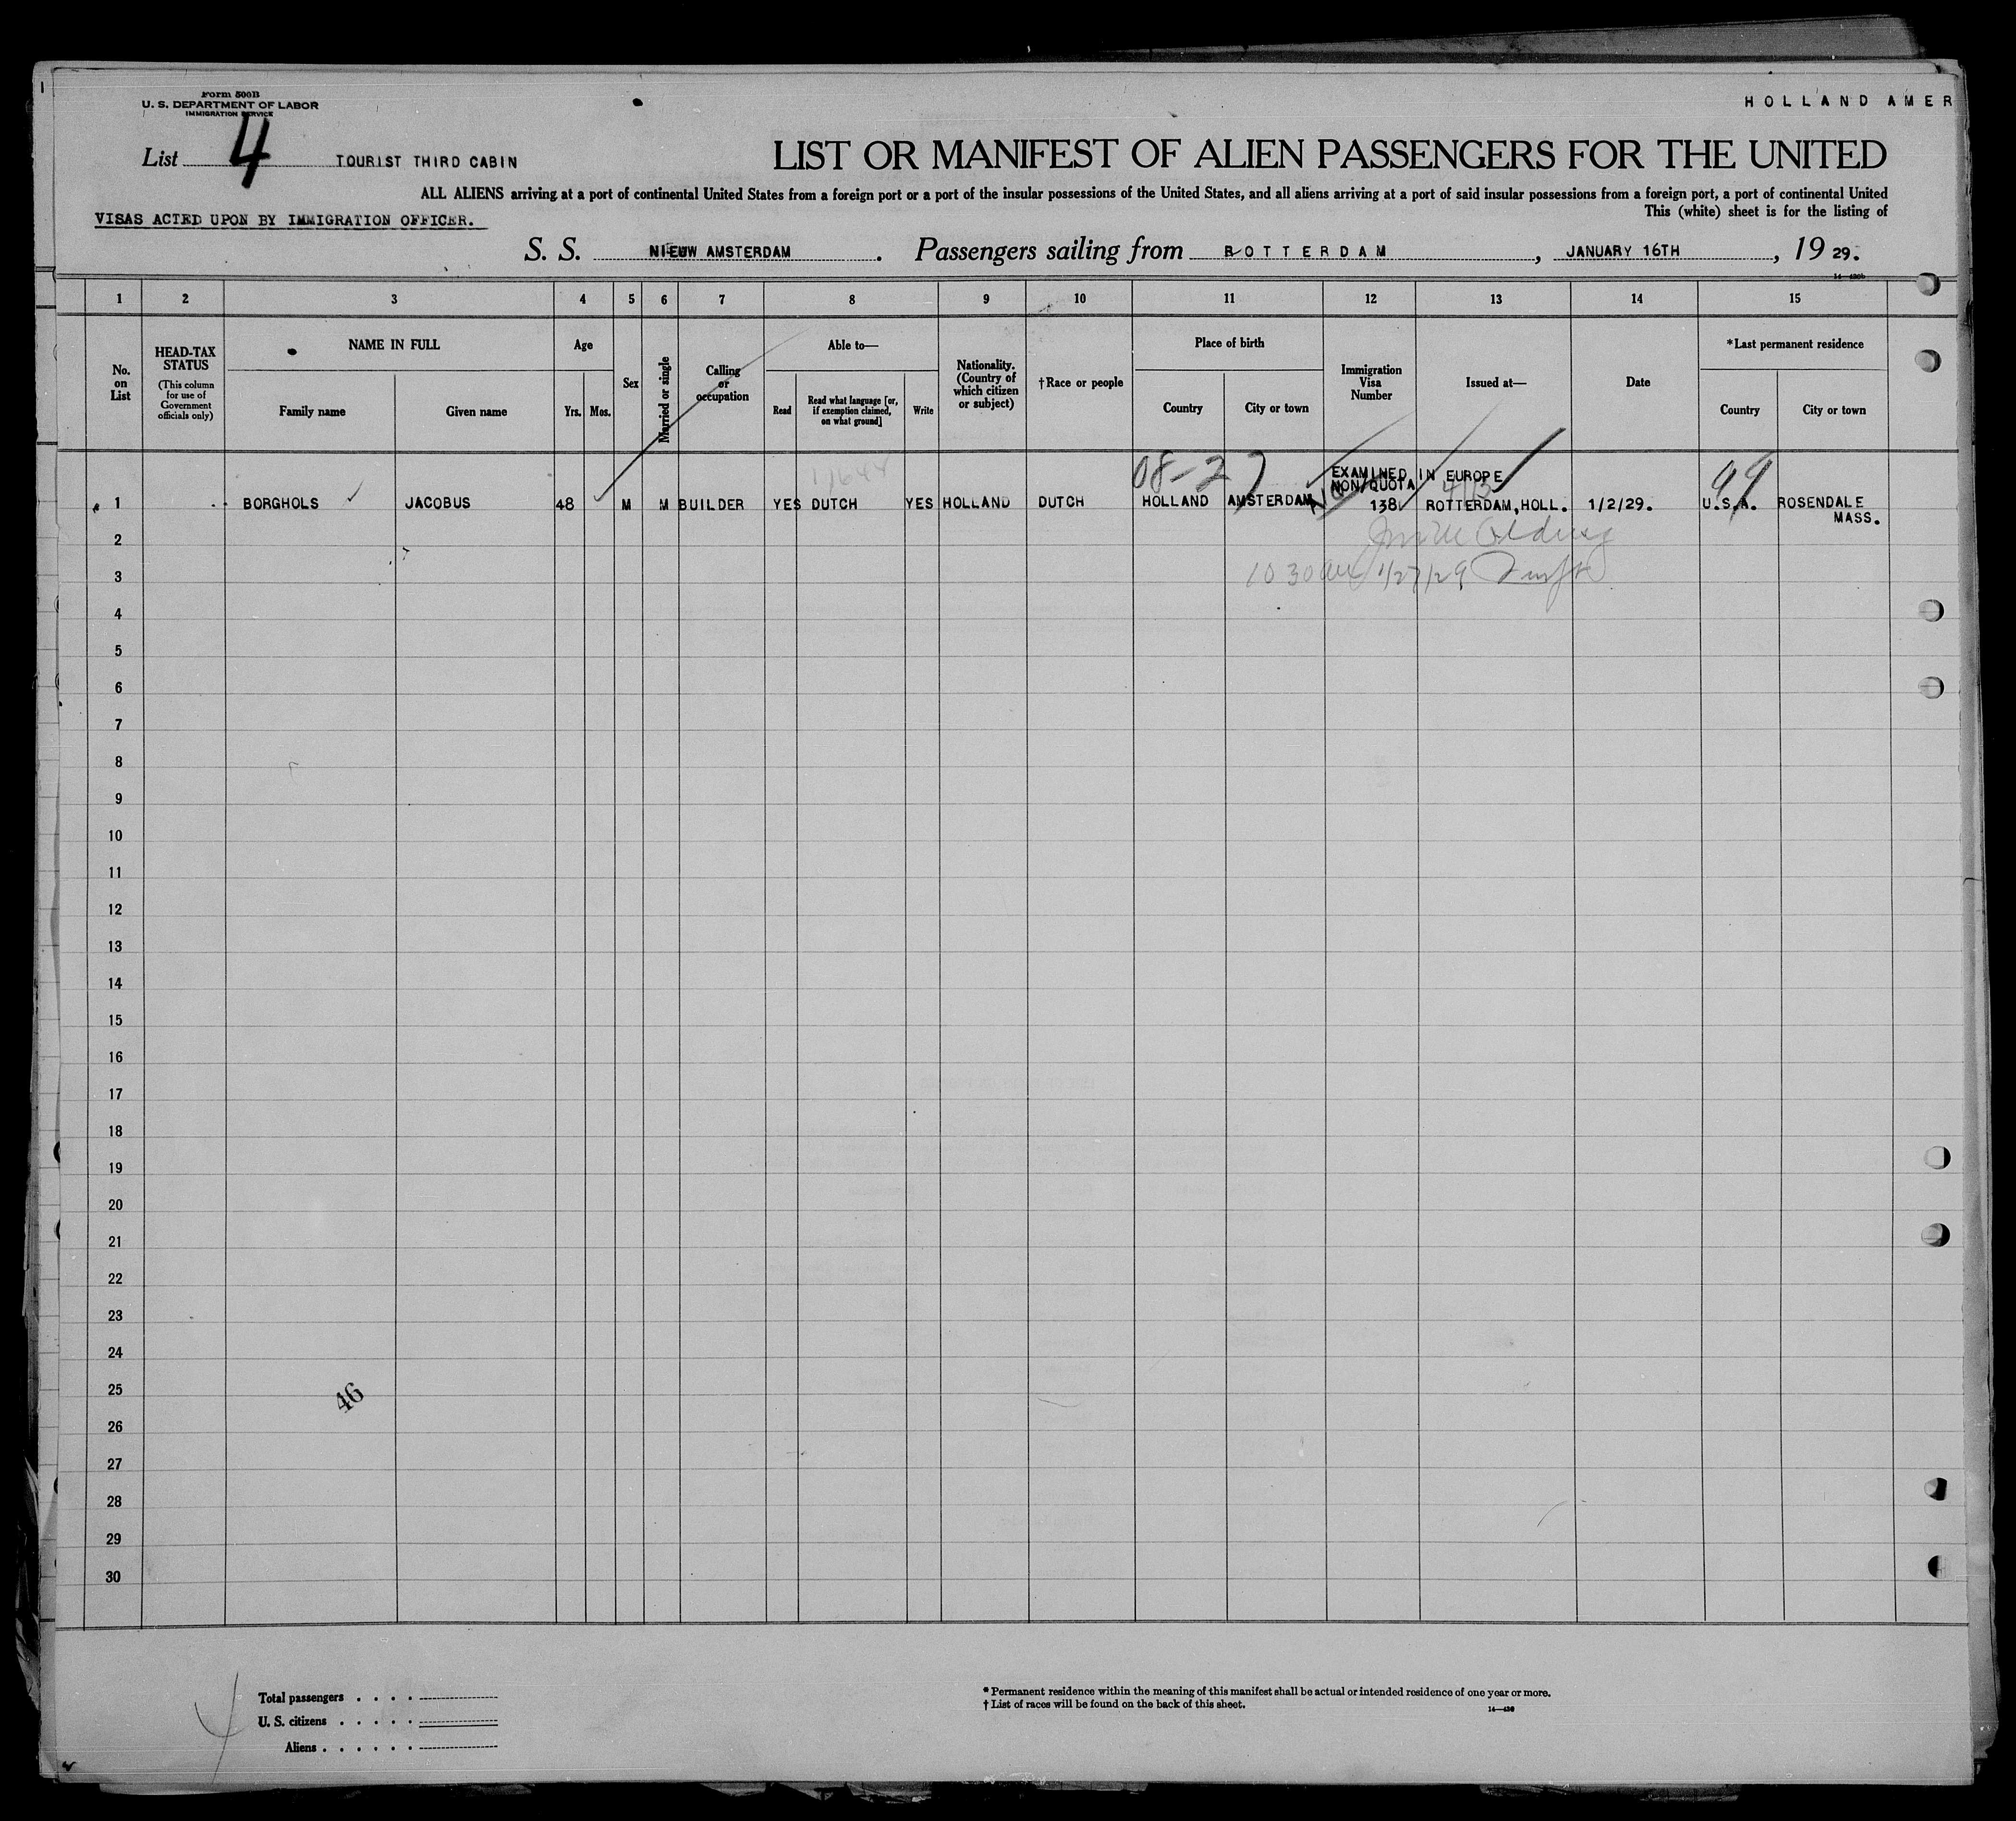 Form 500B
U. S. DEPARTMENT OF LABOR
IMMIGRATION SERVICE
HOLLAND AMER
List 4 TOURIST THIRD CABIN
LIST OR MANIFEST OF ALIEN PASSENGERS FOR THE UNITED
ALL ALIENS arriving at a port of continental United States from a foreign port or a port of the insular possessions of the United States, and all aliens arriving at a port of said insular possessions from a foreign port, a port of continental United
VISAS ACTED UPON BY IMMIGRATION OFFICER.
This (white) sheet is for the listing of
S. S. NIEUW AMSTERDAM. Passengers sailing from ROTTERDAM, JANUARY 16TH, 19 29.
1 2 3 4 5 6 7 8 9 10 11 12 13 14 15
No. on List
HEAD-TAX STATUS
(This column for use of Government officials only)
NAME IN FULL
Family name Given name
Age
Yrs. Mos.
Sex
Married or single
Calling or occupation
Able to—
Read
Read what language [or, if exemption claimed, on what ground]
Write
Nationality. (Country of which citizen or subject)
†Race or people
Place of birth
Country City or town
Immigration Visa Number
Issued at—
Date
*Last permanent residence
Country City or town
08-27
99
EXAMINED IN EUROPE
NON/QUOTA
413
1 BORGHOLS JACOBUS 48 M M BUILDER YES DUTCH YES HOLLAND DUTCH HOLLAND AMSTERDAM 138 ROTTERDAM, HOLL. 1/2/29. U.S.A. ROSENDALE
MASS.
2
3 10 30 am 1/27/29
4
5
6
7
8
9
10
11
12
13
14
15
16
17
18
19
20
21
22
23
24
25
46
26
27
28
29
30
Total passengers . . . .
U. S. citizens . . . . .
Aliens . . . . . .
* Permanent residence within the meaning of this manifest shall be actual or intended residence of one year or more.
† List of races will be found on the back of this sheet.